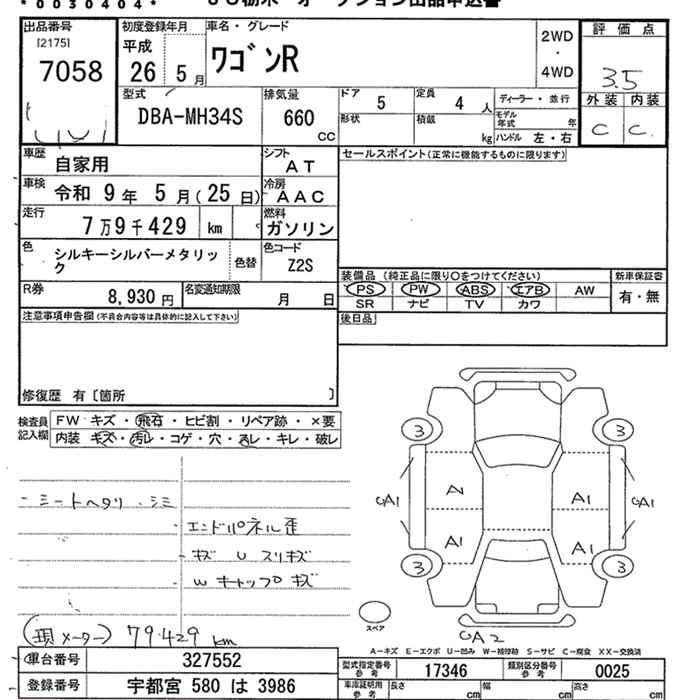 *0030404*
出品番号
[2175]
7058
初度登録年月
平成
26 5月
車名・グレード
ワゴンR
2WD
・
4WD
評価点
3.5
外装 内装
C C
型式
DBA-MH34S
排気量
660
cc
ドア
5
定員
4 人
ディーラー・並行
形状
積載
kg
モデル年式 年
ハンドル 左・右
車歴
自家用
シフト
AT
セールスポイント(正常に機能するものに限ります)
車検
令和 9年 5月(25日)
冷房
AAC
走行
7万9千429 km
燃料
ガソリン
色
シルキーシルバーメタリック
色替
色コード
Z2S
装備品 (純正品に限り○をつけてください)
新車保証書
PS PW ABS エアB AW
有・無
SR ナビ TV カワ
R券
8,930円
名変通知期限
月 日
後日品
注意事項申告欄(不具合内容等は具体的に記入して下さい)
修復歴 有〔箇所 〕
検査員記入欄
FW キズ・飛石・ヒビ割・リペア跡・×要
内装 キズ・汚レ・コゲ・穴・スレ・キレ・破レ
シートヘタリ・シミ
エンドパネル歪
キズ U スリキズ
W キャップキズ
(現メーター) 79.429 km
3 3
A A1
A1 A1
A1 A1
3 3
スペア
A2
A-キズ E-エクボ U-凹み W-補修跡 S-サビ C-腐食 XX-交換済
車台番号
327552
型式指定番号
参考
17346
類別区分番号
参考
0025
登録番号
宇都宮 580 は 3986
車庫証明用
参考
長さ cm
幅 cm
高さ cm